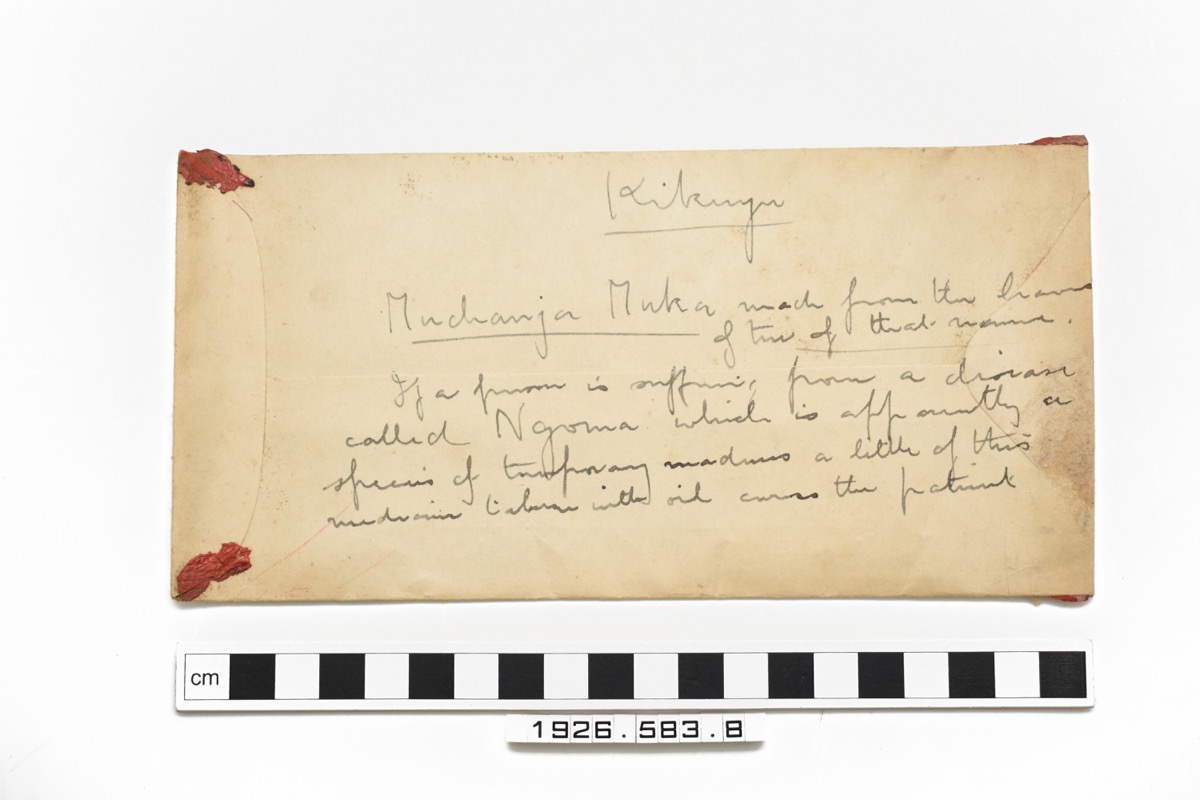 Kikuyu
Muchanja Muka made from the leaves
of tree of that name.
If a person is suffering from a disease
called Ngoma which is apparently a
species of temporary madness a little of this
medicine taken with oil cures the patient
cm
1926.583.8